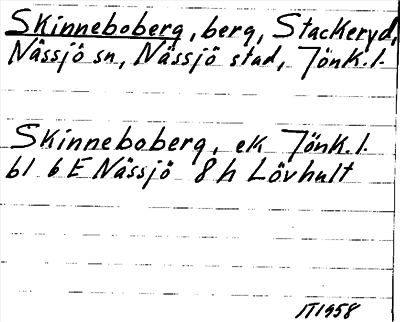 Skinneboberg, berg, Stackeryd,
Nässjö sn, Nässjö stad, Jönk.l.
Skinneboberg, ek Jönk.l.
bl 6 E Nässjö 8 h Lövhult
IT1958